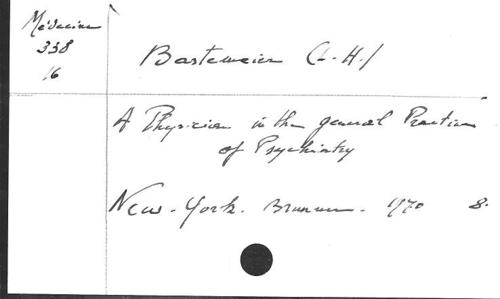 Médecine
338
16
Bartemeier (L. H.)
A Physician in the general Practice
of Psychiatry
New-York. Brunner. 1970 8.